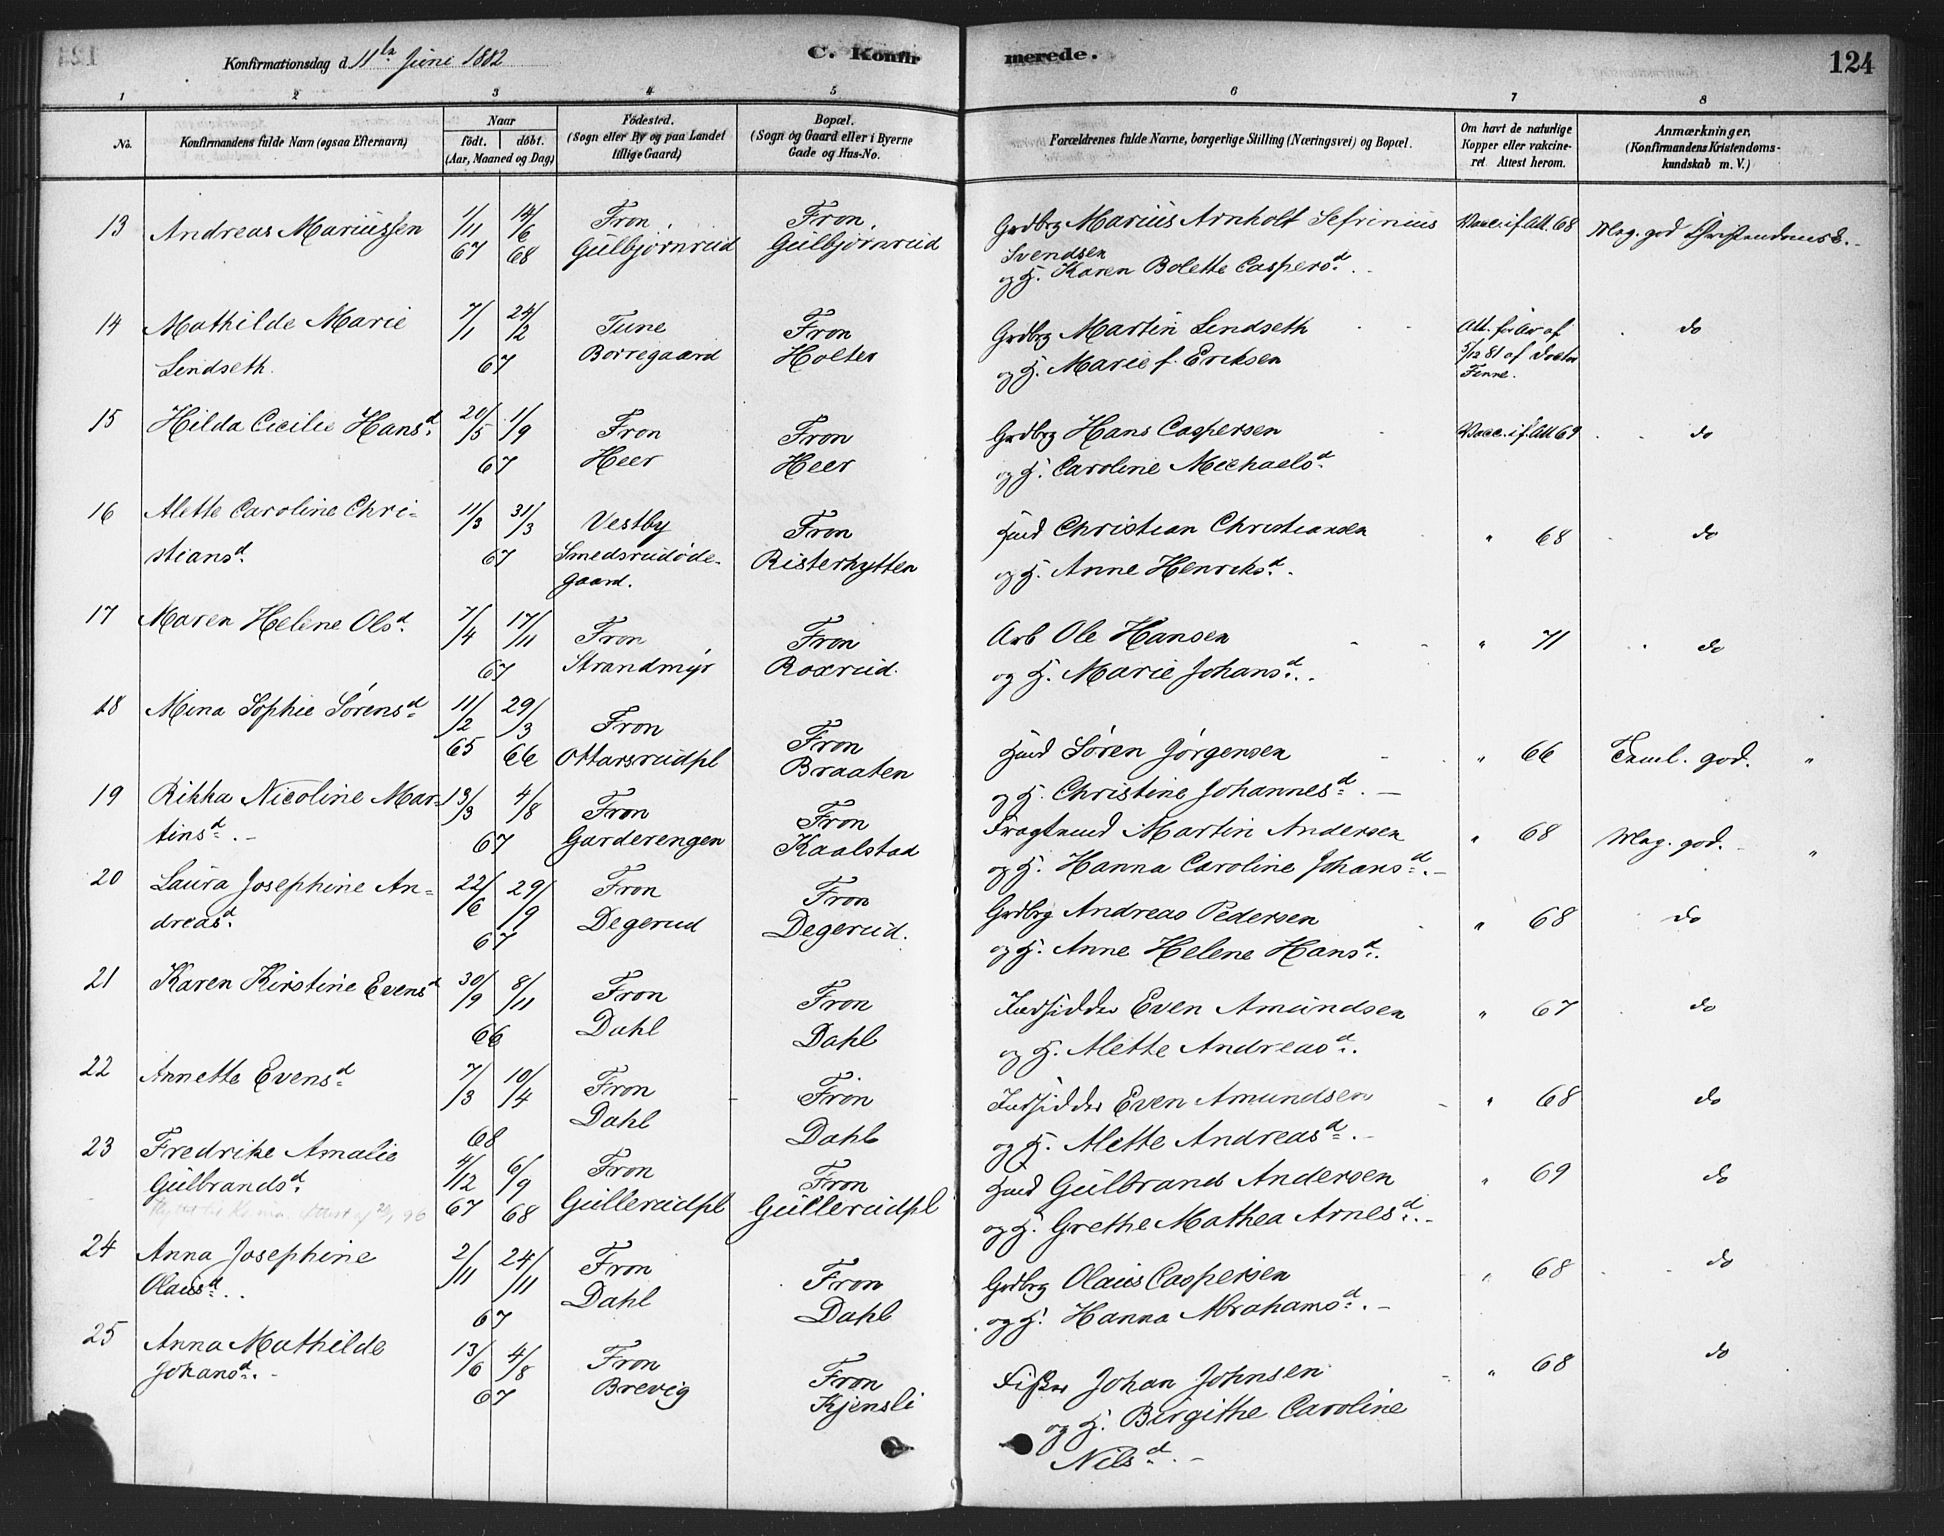 Konfirmationsdag d. 11te Juni 1882
C. Konfirmerede.
124
1 2 3 4 5 6 7 8
No.
Konfirmandens fulde Navn (ogsaa Efternavn)
Naar
født. døbt.
(Aar, Maaned og Dag)
Fødested.
(Sogn eller By og paa Landet
tillige Gaard)
Bopæl.
(Sogn og Gaard eller i Byerne
Gade og Hus-No.
Forældrenes fulde Navne, borgerlige Stilling (Næringsvei) og Bopæl.
Om havt de naturlige
Kopper eller vakcine-
ret Attest herom.
Anmærkninger.
(Konfirmandens Kristendoms-
kundskab m. V.)
13 Andreas Mariussen 1/11 67 14/6 68 Fron, Fron, Grdbrg Marius Arnholt Sefrinius Vacc. if. Att. 68 Meg. god Christendomsk.
Gulbjørnrud Gulbjørnrud Svendsen
og H. Karen Bolette Caspersd.
14 Mathilde Marie 7/1 24/2 Tune Fron Grdbrg Martin Lindseth do
Lindseth. 67 Borregaard Holter og H. Marie f. Eriksen
5/12 81 af Doctor
Finne.
15 Hilda Cicilie Hansd. 20/5 1/9 Fron Fron Grdbrg Hans Caspersen Vacc. if. Att 69 do
67 Heer Heer og H. Caroline Michaelsd.
16 Alette Caroline Chri- 11/3 31/3 Vestby Fron Hmd Christian Christiansen " 68 do
stiansd. 67 Smedsrudøde- Risterhytten og H. Anne Henriksd.
gaard.
17 Maren Helene Olsd. 7/4 17/11 Fron Fron Arb Ole Hansen " 71 do
67 Strandmyr Roxrud. og H. Marie Johansd.
18 Mina Sophie Sørensd 11/2 29/3 Fron Fron Hmd Søren Jørgensen " 66 Teml. god. "
65 66 Ottarsrudpl Braaten og H. Christine Johannesd.
19 Rikka Nicoline Mar- 13/3 4/8 Fron Fron Fragtemd Martin Andersen " 68 Meg. god. "
tinsd. 67 Garderengen Kaalstad og H. Hanna Caroline Johansd.
20 Laura Josephine An- 22/6 29/9 Fron Fron Grdbrg Andreas Pedersen " 68 do
dreasd. 67 Degerud Degerud. og H. Anne Helene Hansd.
21 Karen Kirstine Evensd 30/9 8/11 Fron Fron Indsidder Even Amundsen " 67 do
66 Dahl Dahl og H. Alette Andreasd.
22 Annette Evensd 7/3 10/4 Fron Fron Indsidder Even Amundsen " 68 do
68 Dahl Dahl og H. Alette Andreasd.
23 Fredrike Amalie 4/12 6/9 Fron Fron Hmd Gulbrand Andersen " 69 do
Gulbrandsd. 67 68 Gullerudpl Gullerudpl og H. Grethe Mathea Arnesd.
24 Anna Josephine 2/11 24/11 Fron Fron Grdbrg Olaus Caspersen " 68 do
Olausd. 67 Dahl Dahl og H. Hanna Abrahamsd.
25 Anna Mathilde 13/6 4/8 Fron Fron Fisker Johan Johnsen " 68 do
Johansd. 67 Brevig Kjensli og H. Birgithe Caroline
Nilsd.